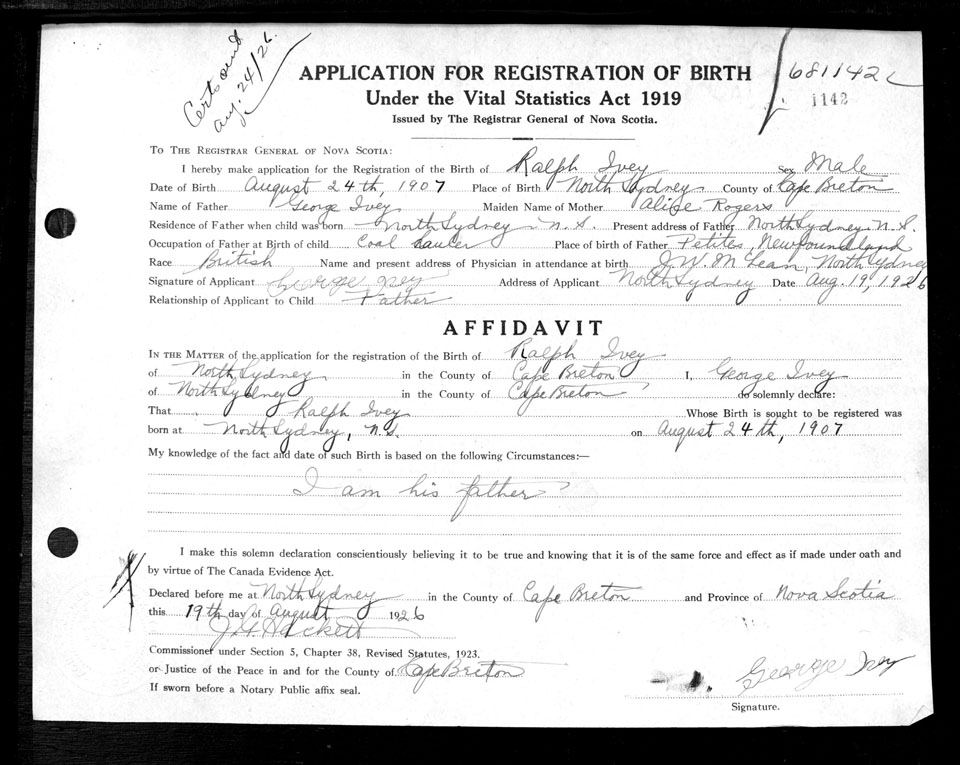 Cert sent
Aug. 24/26.
6811422
1142
APPLICATION FOR REGISTRATION OF BIRTH
Under the Vital Statistics Act 1919
Issued by The Registrar General of Nova Scotia.
TO THE REGISTRAR GENERAL OF NOVA SCOTIA:
I hereby make application for the Registration of the Birth of Ralph Ivey Sex Male
Date of Birth August 24th, 1907 Place of Birth North Sydney County of Cape Breton
Name of Father George Ivey Maiden Name of Mother Alice Rogers
Residence of Father when child was born North Sydney N.S. Present address of Father North Sydney N.S.
Occupation of Father at Birth of child Coal hauler Place of birth of Father Petites, Newfoundland
Race British Name and present address of Physician in attendance at birth J. W. McLean, North Sydney
Signature of Applicant George Ivey Address of Applicant North Sydney Date Aug. 19, 1926
Relationship of Applicant to Child Father
AFFIDAVIT
IN THE MATTER of the application for the registration of the Birth of Ralph Ivey
of North Sydney in the County of Cape Breton I, George Ivey
of North Sydney in the County of Cape Breton do solemnly declare:
That Ralph Ivey Whose Birth is sought to be registered was
born at North Sydney, N.S. on August 24th, 1907
My knowledge of the fact and date of such Birth is based on the following Circumstances:—
I am his father
I make this solemn declaration conscientiously believing it to be true and knowing that it is of the same force and effect as if made under oath and
by virtue of The Canada Evidence Act.
Declared before me at North Sydney in the County of Cape Breton and Province of Nova Scotia
this 19th day of August 1926
Hackett
Commissioner under Section 5, Chapter 38, Revised Statutes, 1923.
or Justice of the Peace in and for the County of Cape Breton
If sworn before a Notary Public affix seal.
George Ivey
Signature.